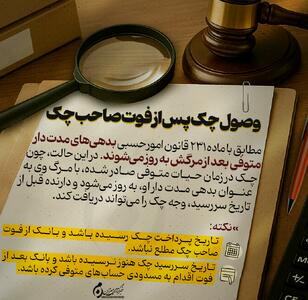 وصول چک پس از فوت صاحب چک
مطابق با ماده ۲۳۱ قانون امور حسبی بدهی‌های مدت دار
متوفی بعد از مرگش به روز می‌شوند. در این حالت، چون
چک در زمان حیات متوفی صادر شده، با مرگ وی به
عنوان بدهی مدت دار او، به روز می‌شود و دارنده قبل از
تاریخ سررسید، وجه چک را می‌تواند دریافت کند.
»نکته:
تاریخ پرداخت چک رسیده باشد و بانک از فوت
صاحب چک مطلع نباشد.
تاریخ سررسید چک هنوز نرسیده باشد و بانک بعد از
فوت اقدام به مسدودی حساب‌های متوفی کرده باشد.